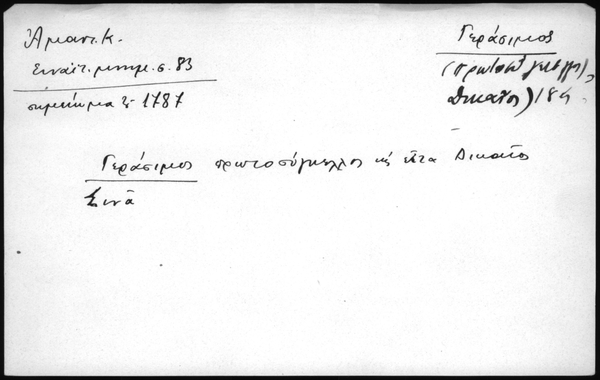 Ἀμαντ. Κ.
Σιναϊτ. μνημ. σ. 83
σημείωμα 1787
Γεράσιμος
(πρωτοσύγκελλος,
Δικαῖος) 18
Γεράσιμος πρωτοσύγκελλος κ εἶτα Δικαῖος
Σινᾶ